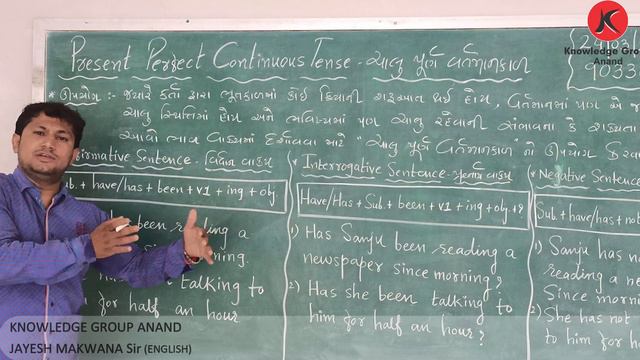 Present Perfect Continuous Tense - ચાલુ પૂર્ણ વર્તમાનકાળ
Knowledge Group
Anand
9033
* ઉપયોગ :- જ્યારે કર્તા દ્વારા ભૂતકાળમાં કોઈ ક્રિયાની શરૂઆત થઈ હોય, વર્તમાનમાં પણ એ
ચાલુ સ્થિતિમાં હોય અને ભવિષ્યમાં પણ ચાલુ રહેવાની સંભાવના કે શક્યતા
આવો ભાવ વાક્યમાં દર્શાવવા માટે "ચાલુ પૂર્ણ વર્તમાનકાળ નો ઉપયોગ
firmative Sentence - વિધાન વાક્ય
ub. + have/has + been + v1 + ing + obj
been reading a
morning.
talking to
for half an hour
* Interrogative Sentence - પ્રશ્નાર્થ વાક્ય
Have/Has + Sub. + been + v1 + ing + obj. + ?
1) Has Sanju been reading a
newspaper since morning?
2) Has she been talking to
him for half an hour?
* Negative Sentence
Sub. + have/has + not
1) Sanju has no
reading a n
Since morn
2) She has not
to him for h
KNOWLEDGE GROUP ANAND
JAYESH MAKWANA Sir (ENGLISH)